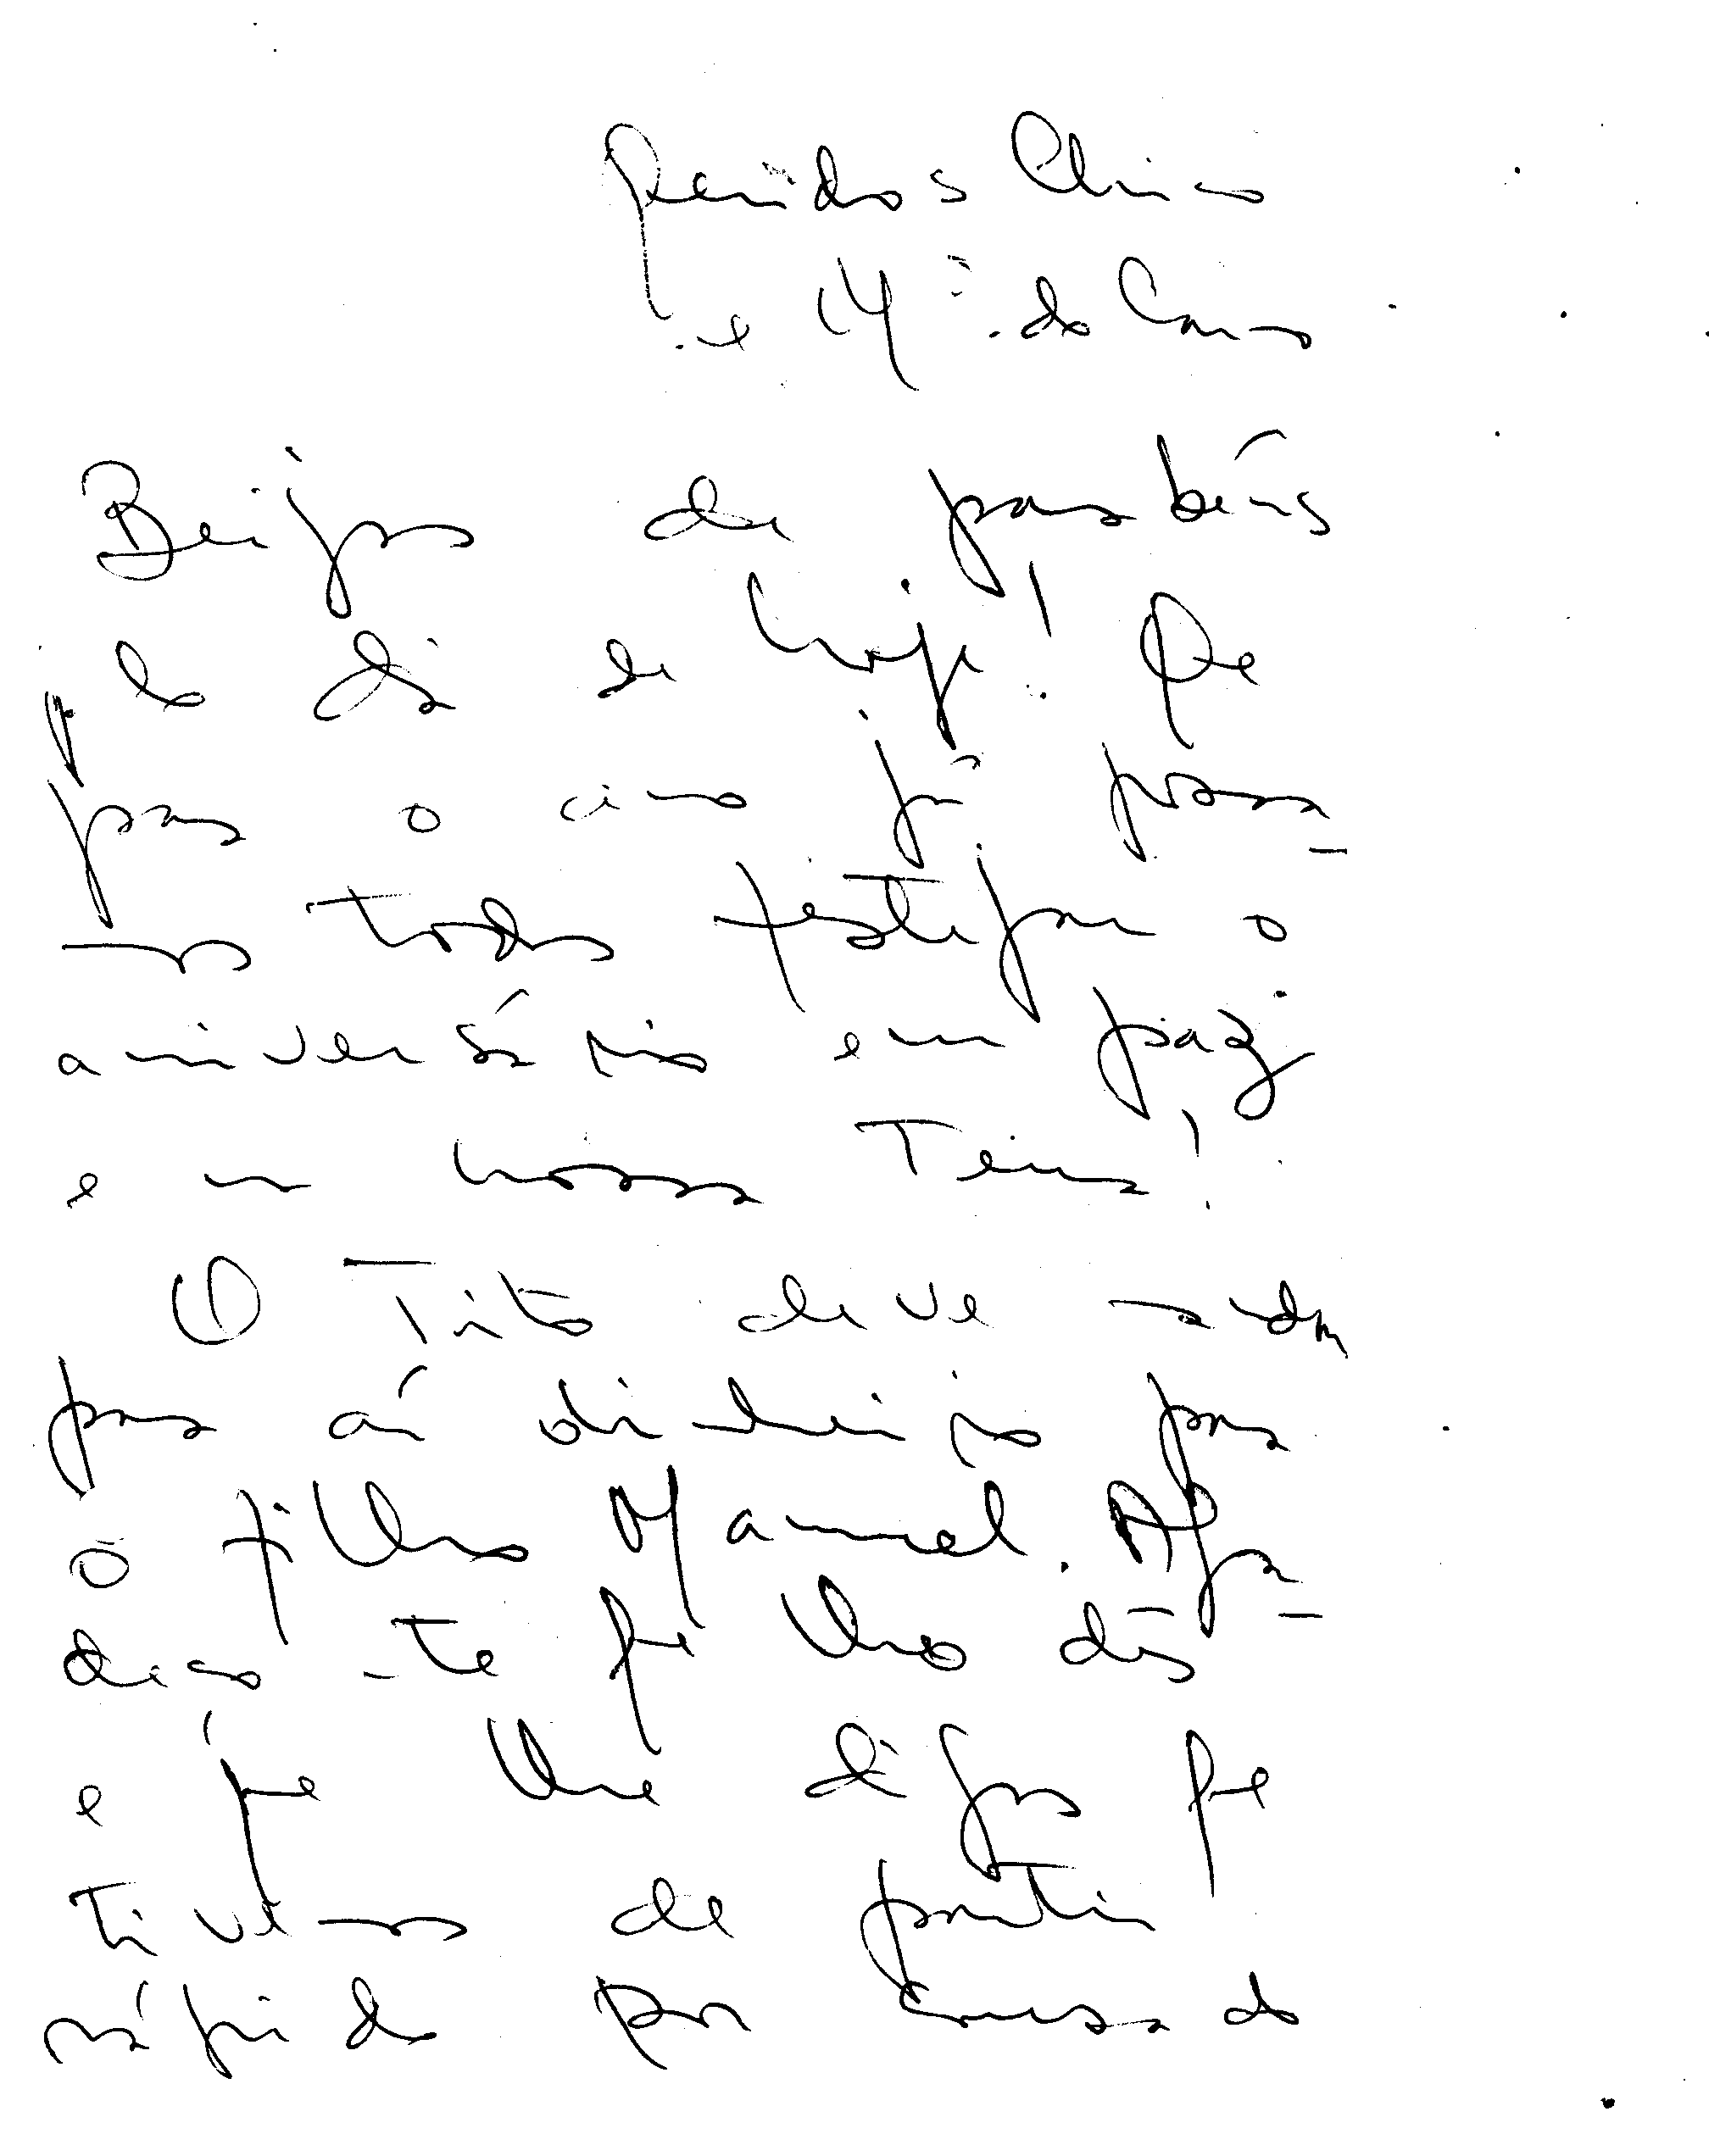 Queridos Chico
e Mª do Carmo
Beijos de parabéns
pelo dia de hoje! Que
para o ano já possa-
mos todos festejar o
aniversário em paz
e na nossa Terra!
O Tito deve mandar
para aí dinheiro para
o filho Manuel. Agra-
deço-te que lho dês
e que lhe digas que
tivemos de partir
rápido por causa do